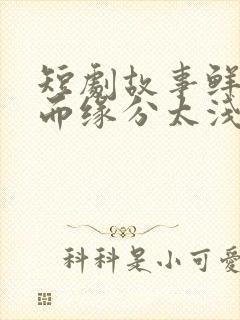 短劇故事鲜
而缘分太浅
科科是小可愛